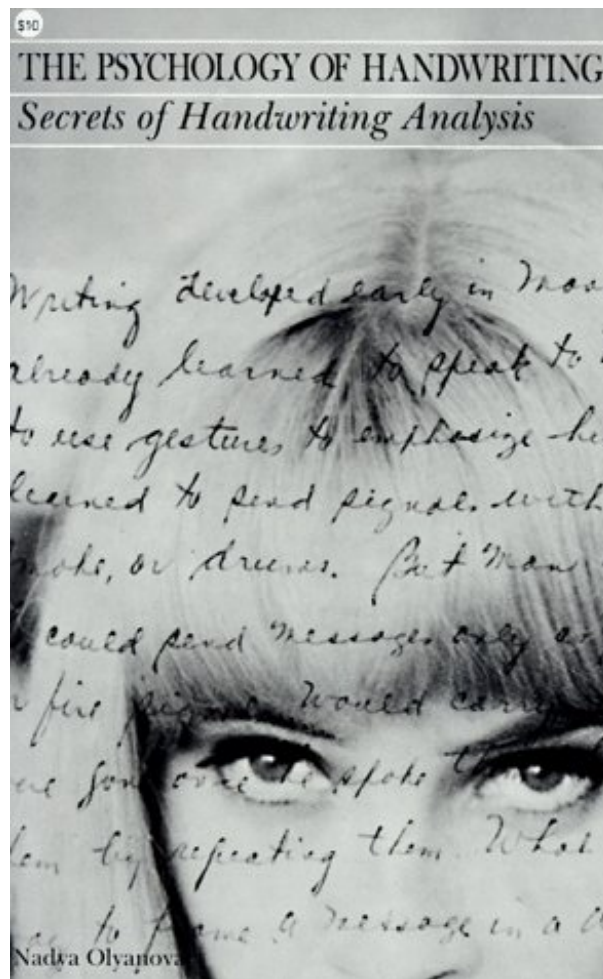 $10
THE PSYCHOLOGY OF HANDWRITING
Secrets of Handwriting Analysis
Writing developed early in
already learned to speak to
to use gestures to emphasize he
learned to send signals with
moke, or drums. But Man
could send messages only as
fire would carry
once he spoke
by repeating them. What
to a message in a
Nadya Olyanova